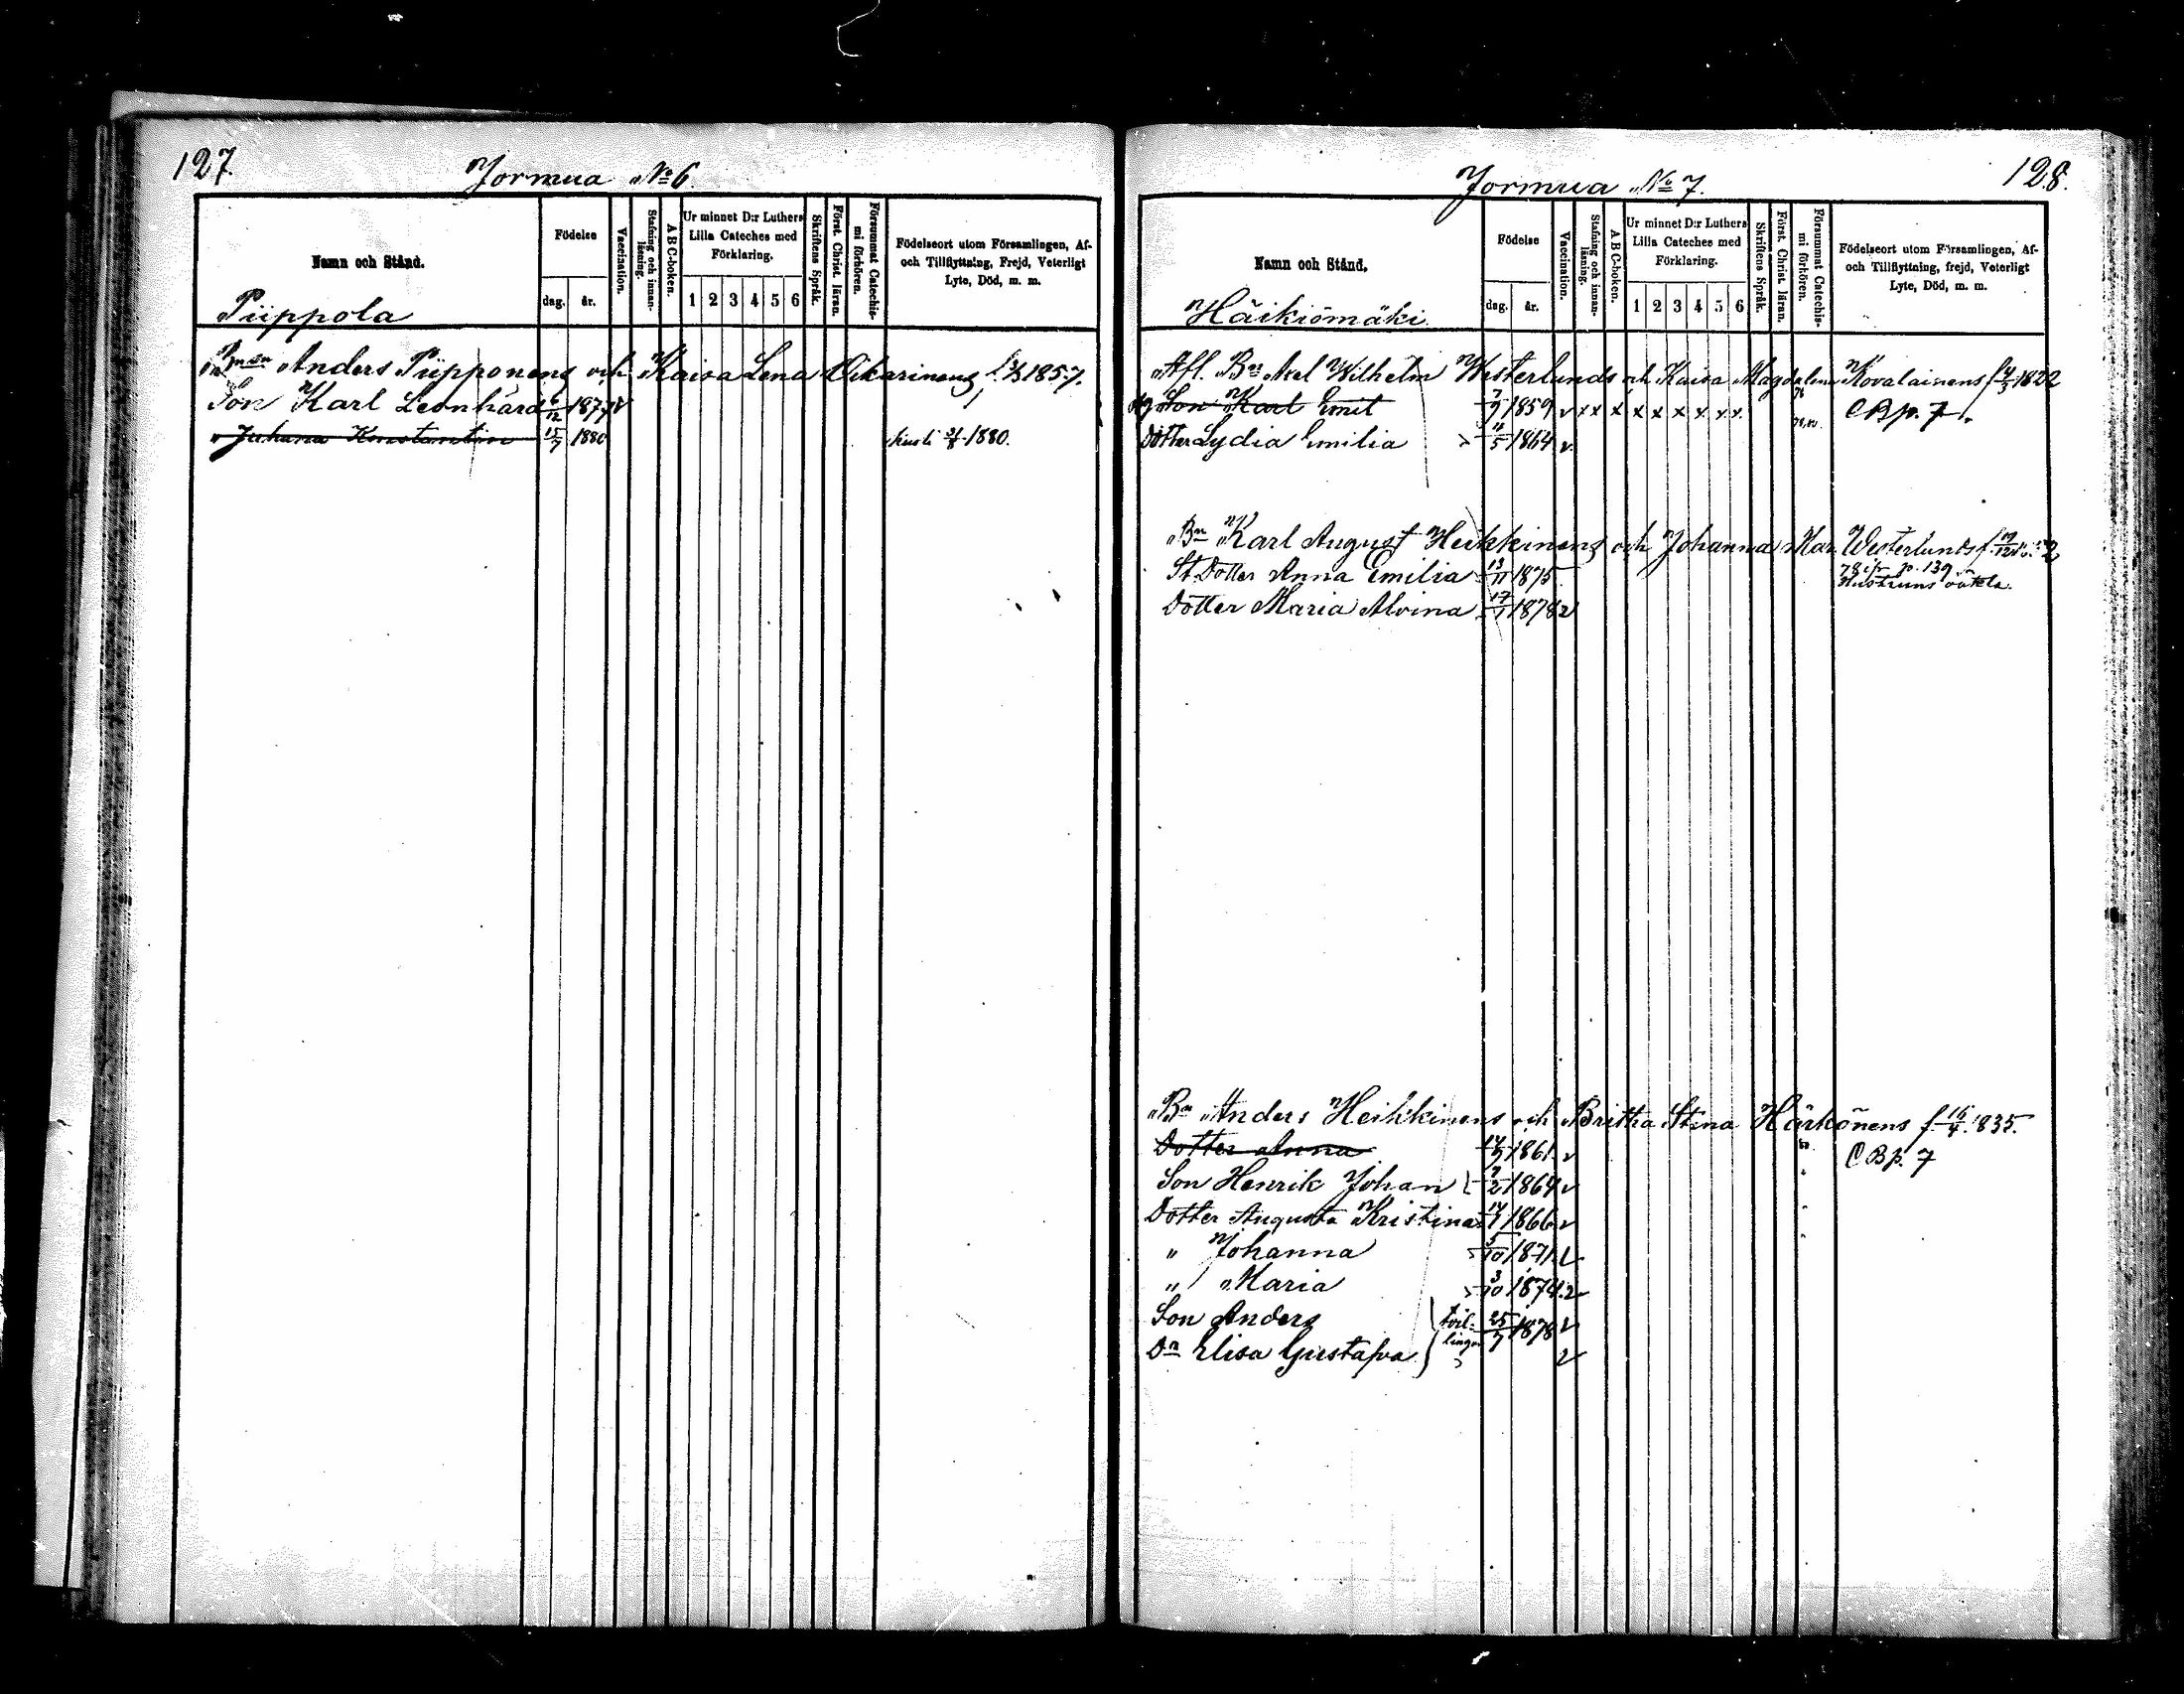 127.
Jormua No 6.
Namn och Stånd.
Födelse
dag.
år.
Vaccination.
Stafning och innan-
läsning.
A B C-boken.
Ur minnet D:r Luthers
Lilla Cateches med
Förklaring.
1 2 3 4 5 6
Skriftens Språk.
Först. Christ. läran.
Försummat Catechis-
mi förhören.
Födelseort utom Församlingen, Af-
och Tillflyttning, Frejd, Veterligt
Lyte, Död, m. m.
Piippola
Anders Piipponens och Kaisa Lena Oikarinens f. 1857.
Son Karl Leonhard 6/12 1877 v
" Juhana Konstantin 15/7 1880 kuoli 1880.
Jormua No 7.
128.
Namn och Stånd.
Födelse
dag.
år.
Vaccination.
Stafning och innan-
läsning.
A B C-boken.
Ur minnet D:r Luthers
Lilla Cateches med
Förklaring.
1 2 3 4 5 6
Skriftens Språk.
Först. Christ. läran.
Försummat Catechis-
mi förhören.
Födelseort utom Församlingen, Af-
och Tillflyttning, frejd, Veterligt
Lyte, Död, m. m.
Häikiömäki
Afl. Bn Axel Wilhelm Westerlunds och Kaisa Magdalena Kovalainens f. 1822
Son Karl Emil 1859 v x x x x x x x x x C B p. 7.
Dotter Lydia Emilia 11/5 1864 v.
Bn Karl August Heikkinens och Johanna Mar. Westerlunds f.
St. Dotter Anna Emilia 13/11 1875. 78 ifr. p. 139
Hustruns oäkta.
Dotter Maria Alvina 17/1 1878 v
Bn Anders Heikkinens och Britha Stina Härkönens f. 16/4 1835.
Dotter Anna 1861 v C B p. 7
Son Henrik Johan 7/2 1864 v
Dotter Augusta Kristina 1866 v
" Johanna 5/10 1871 v
" Maria 3/10 1874 v
Son Anders tvil- 25/7 1878 v
Dr Elisa Gustafva lingar v